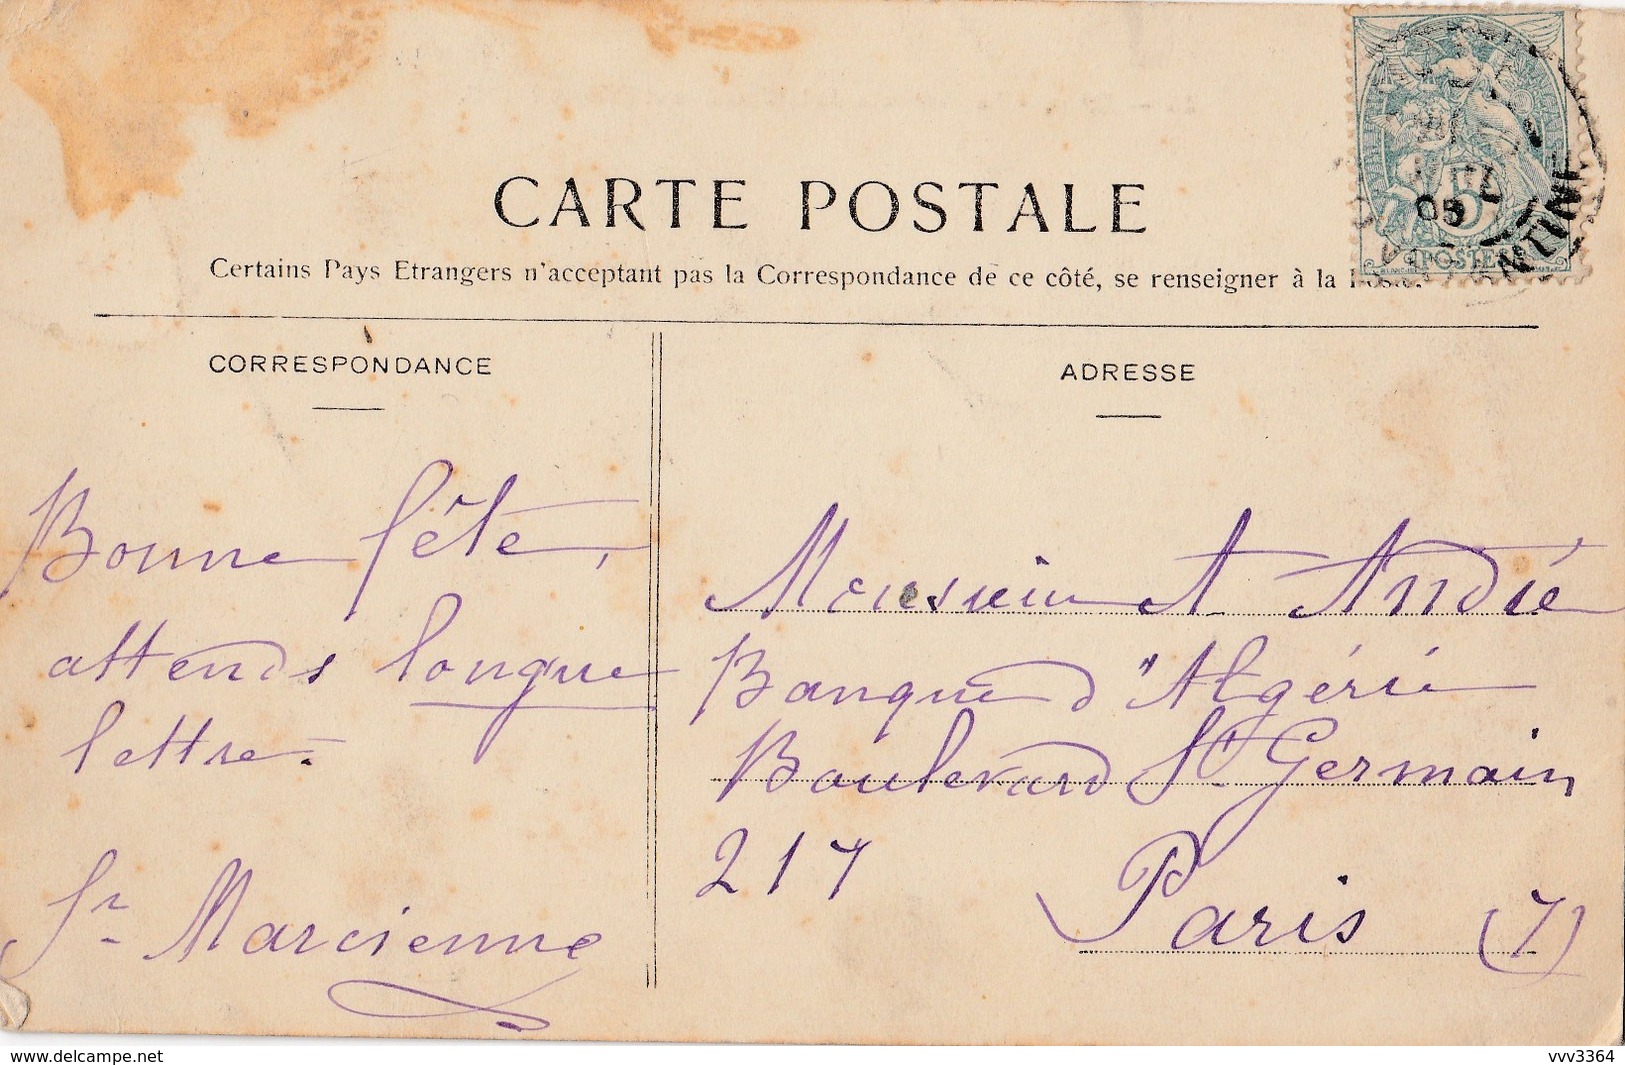 CARTE POSTALE
Certains Pays Etrangers n'acceptant pas la Correspondance de ce côté, se renseigner à la Poste.
CORRESPONDANCE
Bonne fête,
attends longue
lettre.
Sr Marcienne
ADRESSE
Monsieur A. André
Banque d'Algérie
Boulevard St Germain
217
Paris (7)
5
POSTE
05
delcampe.net
vvv3364